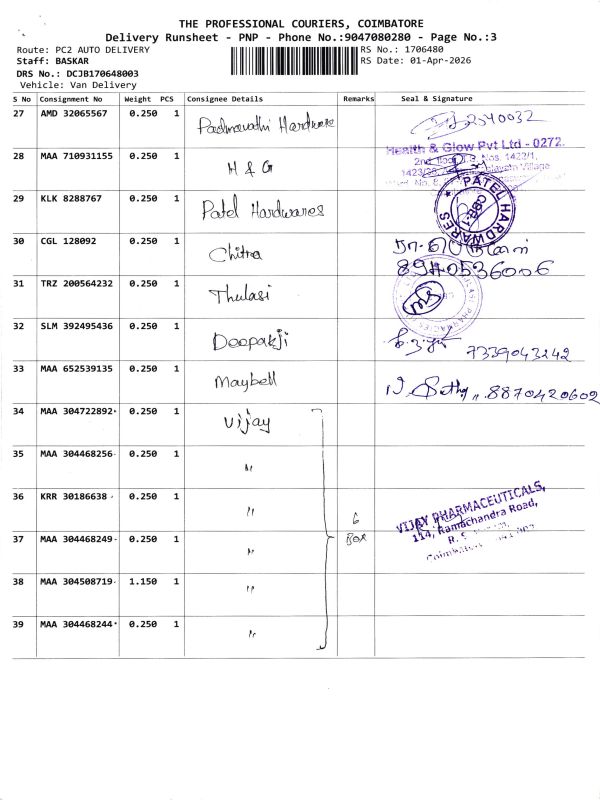 THE PROFESSIONAL COURIERS, COIMBATORE
Delivery Runsheet - PNP - Phone No.:9047080280 - Page No.:3
Route: PC2 AUTO DELIVERY RS No.: 1706480
Staff: BASKAR RS Date: 01-Apr-2026
DRS No.: DCJB170648003
Vehicle: Van Delivery
S No Consignment No Weight PCS Consignee Details Remarks Seal & Signature
27 AMD 32065567 0.250 1 Padmavathi Hardware 2540032
28 MAA 710931155 0.250 1 H & G Health & Glow Pvt Ltd - 0272.
29 KLK 8288767 0.250 1 Patel Hardwares PATEL HARDWARES CBE-1
30 CGL 128092 0.250 1 Chitra 8940536006
31 TRZ 200564232 0.250 1 Thulasi
32 SLM 392495436 0.250 1 Deepakji 7339043242
33 MAA 652539135 0.250 1 Maybell 8870420602
34 MAA 304722892 0.250 1 Vijay
35 MAA 304468256 0.250 1 "
36 KRR 30186638 0.250 1 " 6 VIJAY PHARMACEUTICALS,
114, Ramachandra Road,
37 MAA 304468249 0.250 1 " Box R. S.
38 MAA 304508719 1.150 1 "
39 MAA 304468244 0.250 1 "